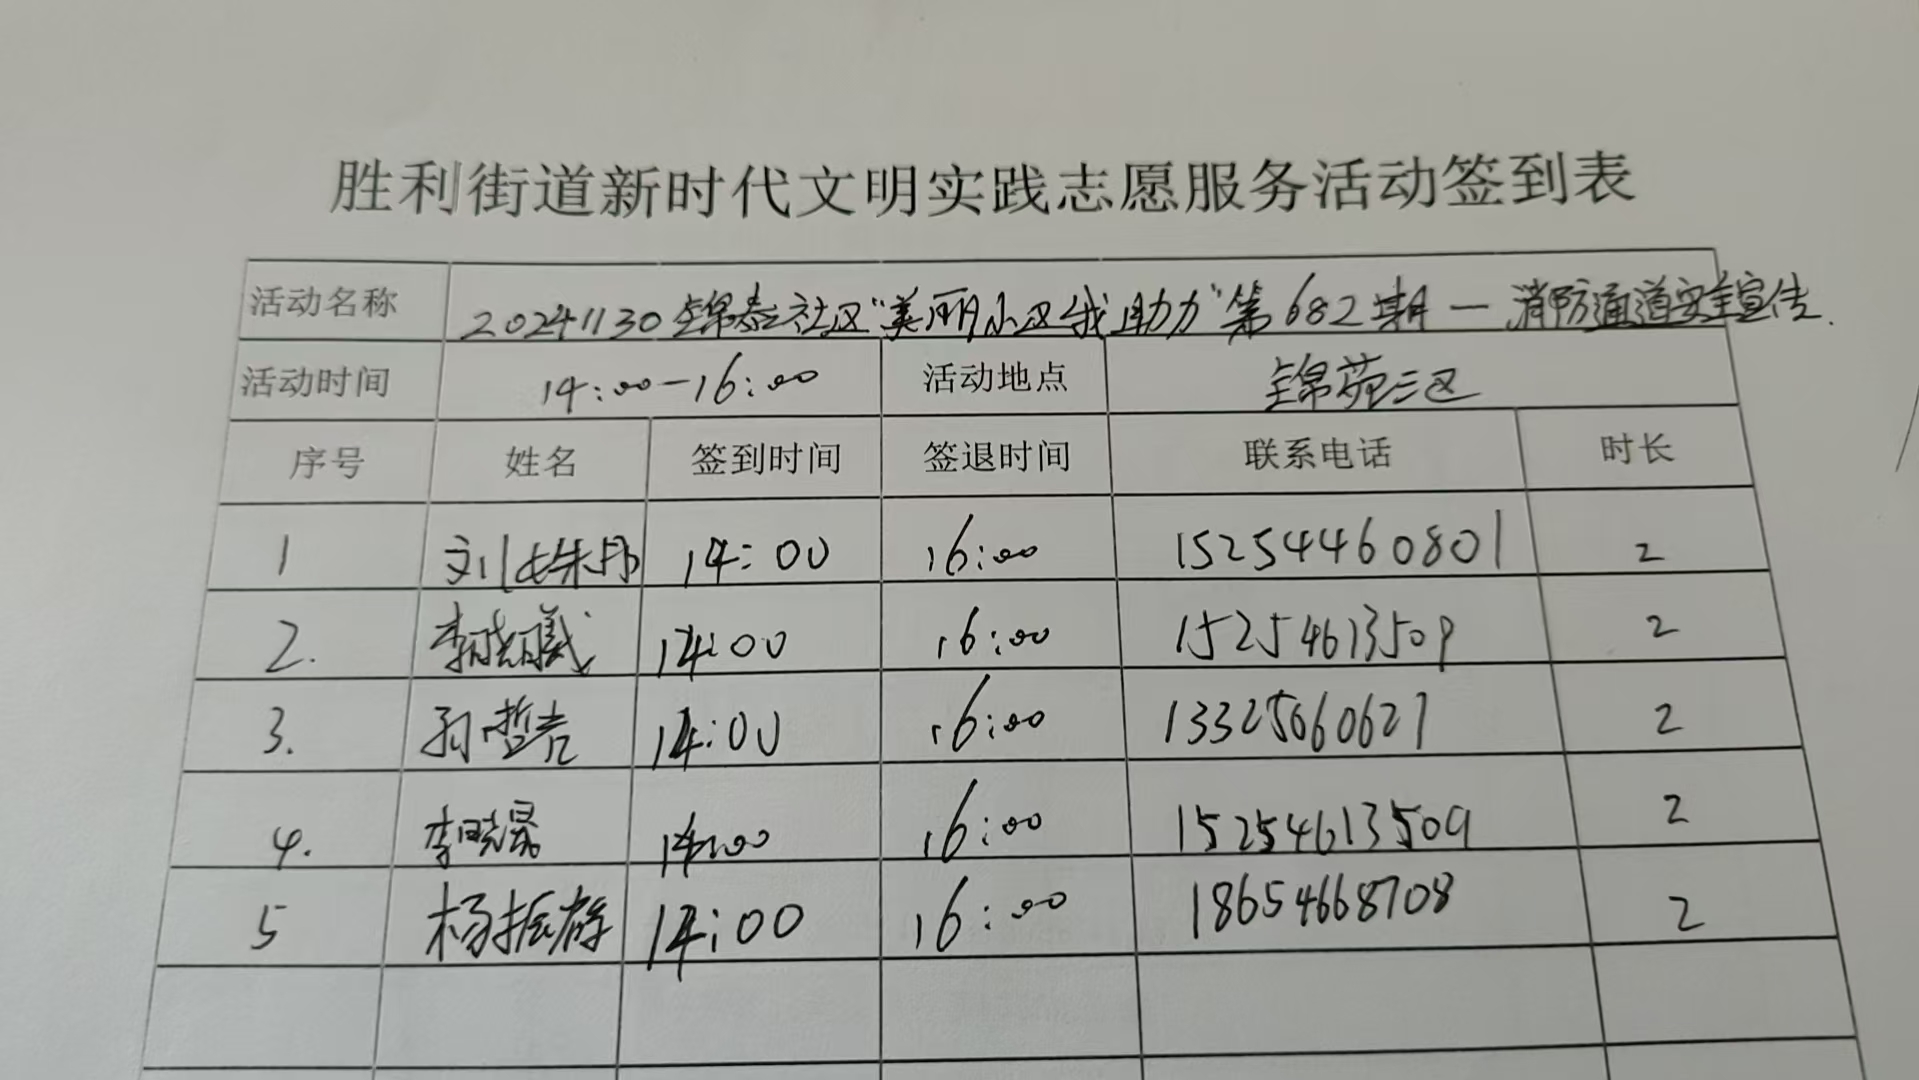 胜利街道新时代文明实践志愿服务活动签到表
活动名称 20241130锦泰社区"美丽小区我助力"第682期—消防通道安全宣传.
活动时间 14:00-16:00 活动地点 锦苑三区
序号 姓名 签到时间 签退时间 联系电话 时长
1 刘姝彤 14:00 16:00 15254460801 2
2. 李晓曦 14:00 16:00 15254613509 2
3. 孙哲 14:00 16:00 13325060627 2
4. 李晓 14:00 16:00 15254613509 2
5 杨振 14:00 16:00 18654668708 2